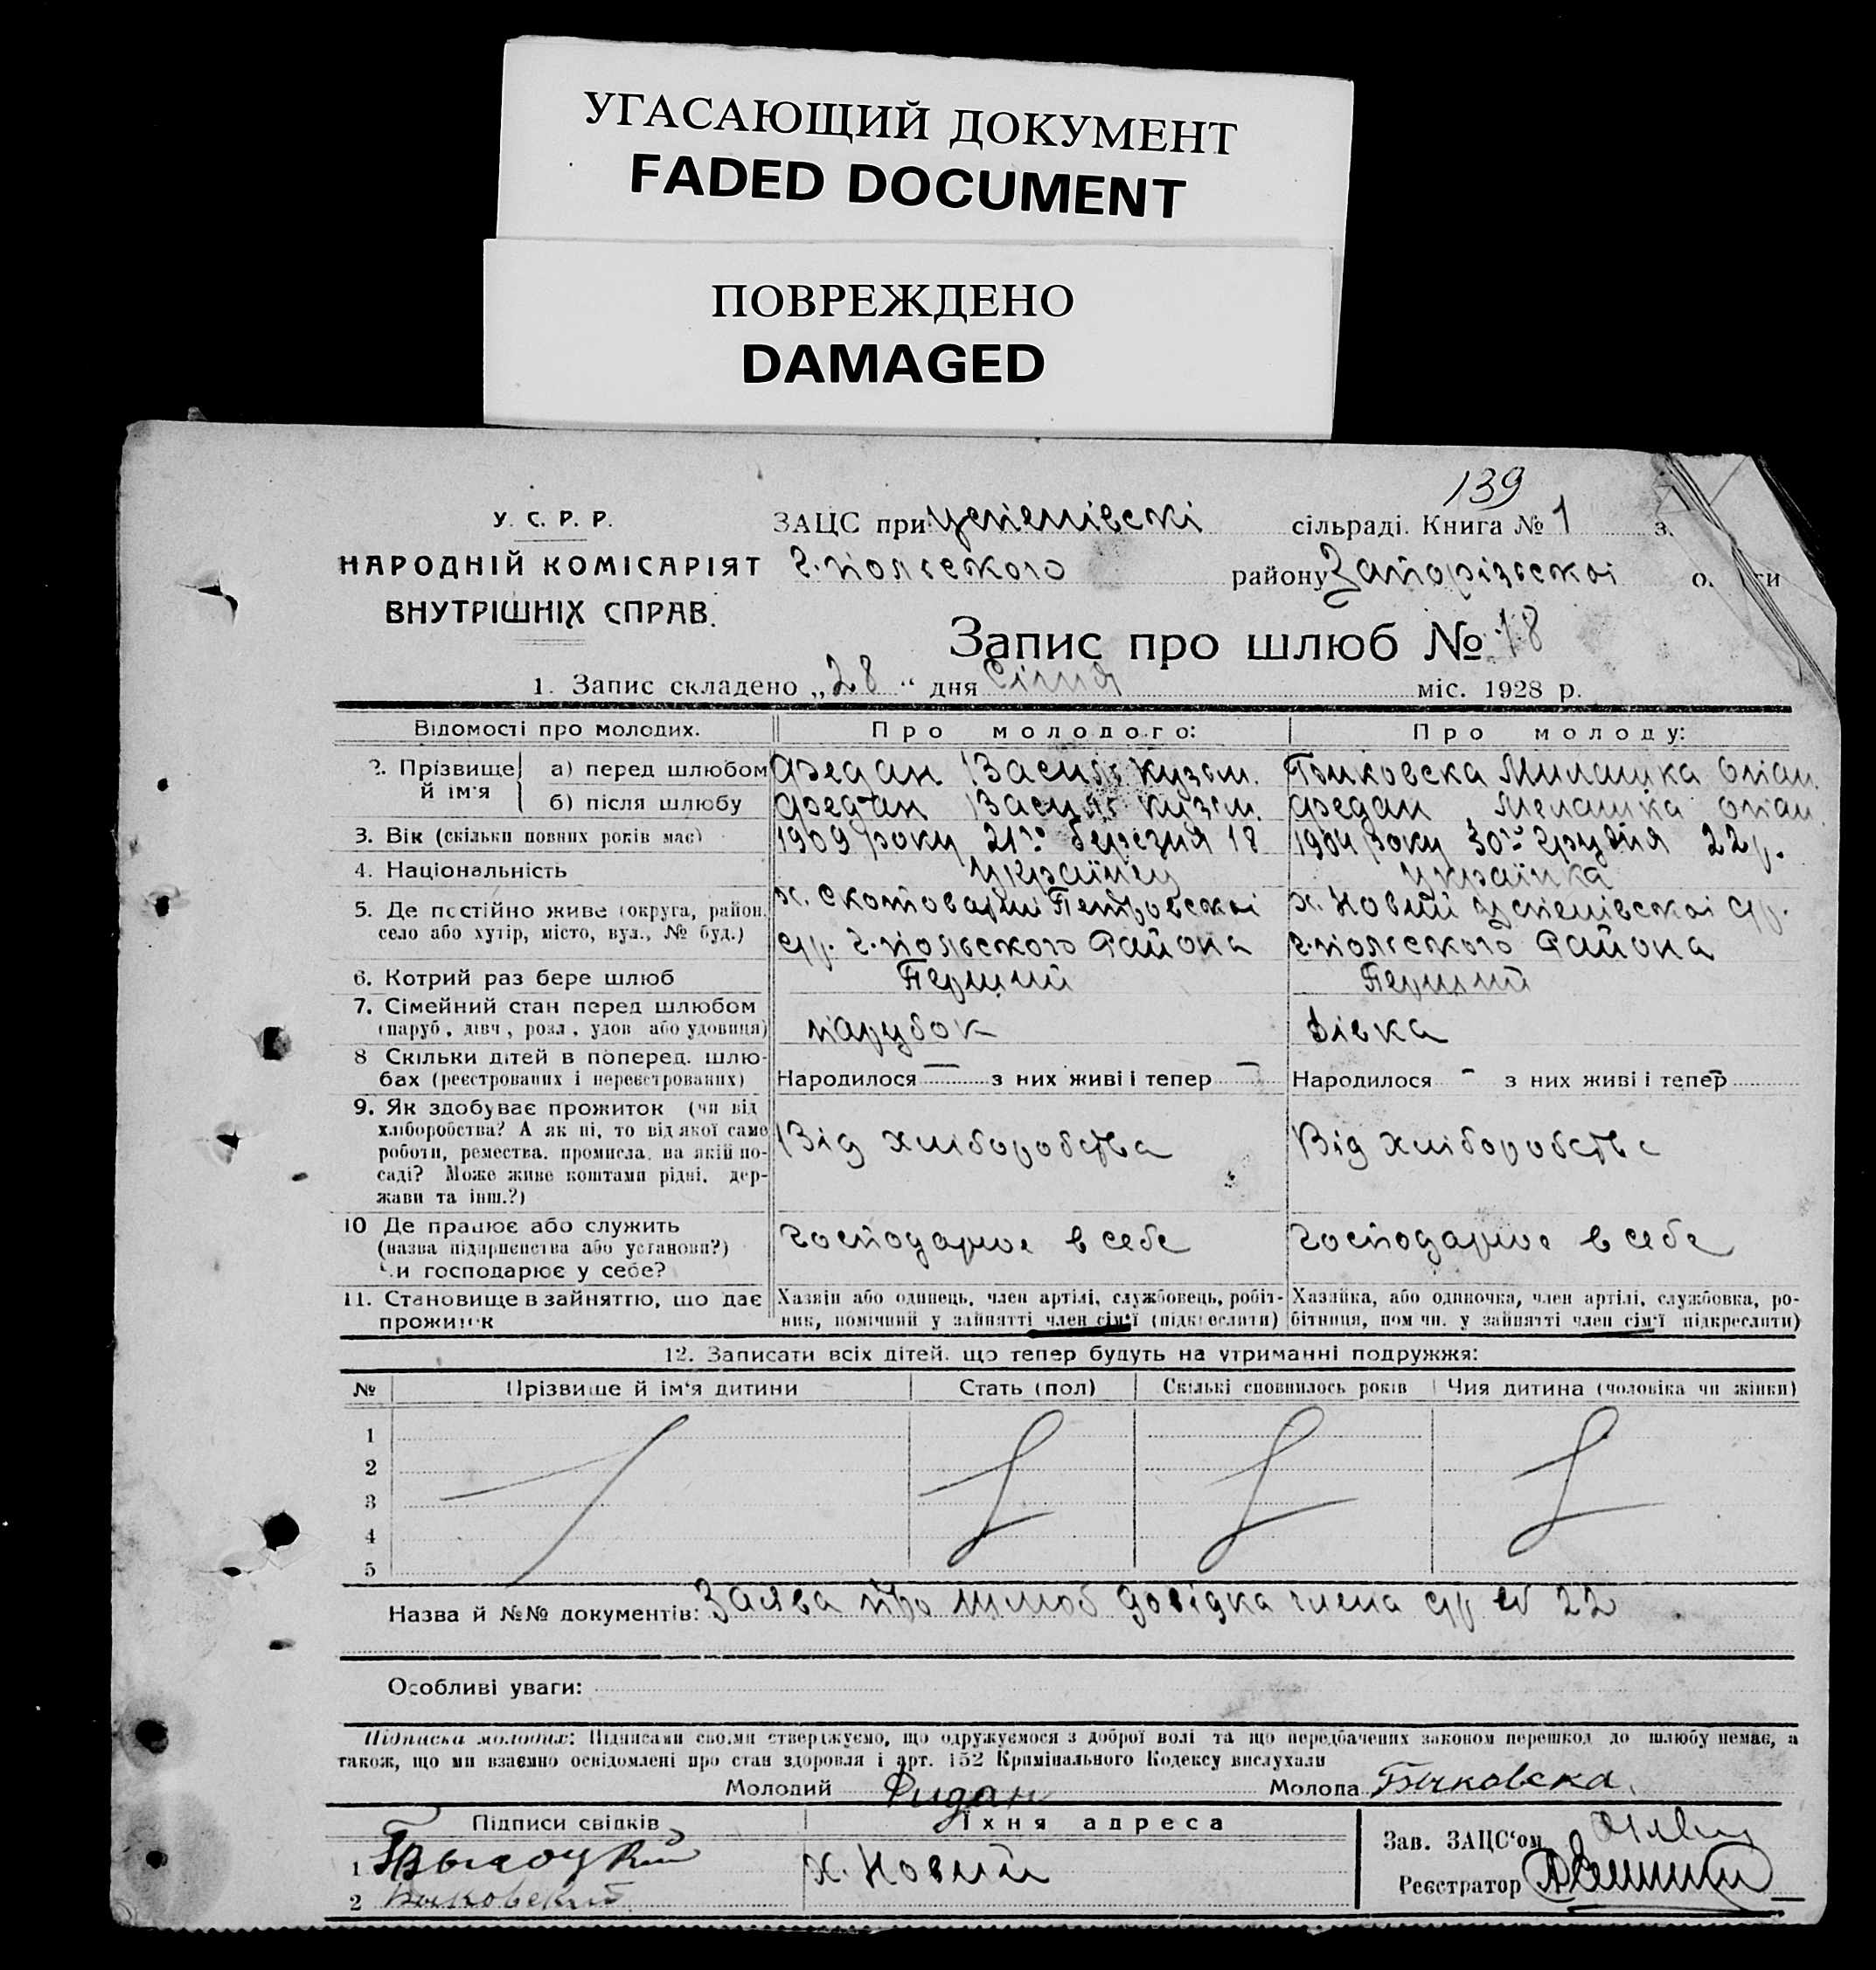 УГАСАЮЩИЙ ДОКУМЕНТ
FADED DOCUMENT
ПОВРЕЖДЕНО
DAMAGED
139
У. С. Р. Р.
НАРОДНІЙ КОМІСАРІЯТ
ВНУТРІШНІХ СПРАВ.
ЗАЦС при Успенівскі сільраді. Книга № 1 з.
Г.польского району Запорізьскоі о. ги
Запис про шлюб № 18
1. Запис складено „28“ дня Січня міс. 1928 р.
Відомості про молодих. Про молодого: Про молоду:
2. Прізвище й ім'я
а) перед шлюбом Федан Василь Кузьм. Биковска Милашка Опан.
б) після шлюбу Федан Василь Кузьм. Федан Мелашка Опан.
3. Вік (скільки повних років має) 1909 року 21го березня 18 1904 року 30го Грудня 22 р.
4. Національність українец українка
5. Де постійно живе (округа, район, село або хутір, місто, вул., № буд.)
х. Скотоварні Петровскоі ср. Г.польского Района
х. Новий Успенівскоі ср. Г.польского Района
6. Котрий раз бере шлюб Перший Перший
7. Сімейний стан перед шлюбом (паруб., дівч., розл., удов. або удовиця) парубок дівка
8 Скільки дітей в поперед. шлюбах (реєстрованих і нереєстрованих)
Народилося — з них живі і тепер — Народилося - з них живі і тепер -
9. Як здобуває прожиток (чи від хліборобства? А як ні, то від якої саме роботи, ремества, промисла, на якій посаді? Може живе коштами рідні, держави та інш.?)
Від хліборобства Від хліборобства
10 Де працює або служить (назва підприємства або установи?) Чи господарює у себе?
Господарює в себе Господарює в себе
11. Становище в зайняттю, що дає прожиток
Хазяїн або одинець, член артілі, службовець, робітник, помічний у зайнятті член сім'ї (підкреслити)
Хазяйка, або одиночка, член артілі, службовка, робітниця, пом чн. у зайнятті член сім'ї підкреслити)
12. Записати всіх дітей, що тепер будуть на утриманні подружжя:
№ Прізвище й ім'я дитини Стать (пол) Скількі сповнилось років Чия дитина (чоловіка чи жінки)
1
2
3
4
5
Назва й №№ документів: Заява про шлюб довідка члена ср № 22
Особливі уваги:
Підписка молодих: Підписами своїми стверджуємо, що одружуємося з доброї волі та що передбачених законом перешкод до шлюбу немає, а
також, що ми взаємно освідомлені про стан здоровля і арт. 152 Кримінального Кодексу вислухали
Молодий Фидан Молода Бичковска.
Підписи свідків Їхня адреса
1 х. Новий
2 Быковский
Зав. ЗАЦС'ом
Реєстратор